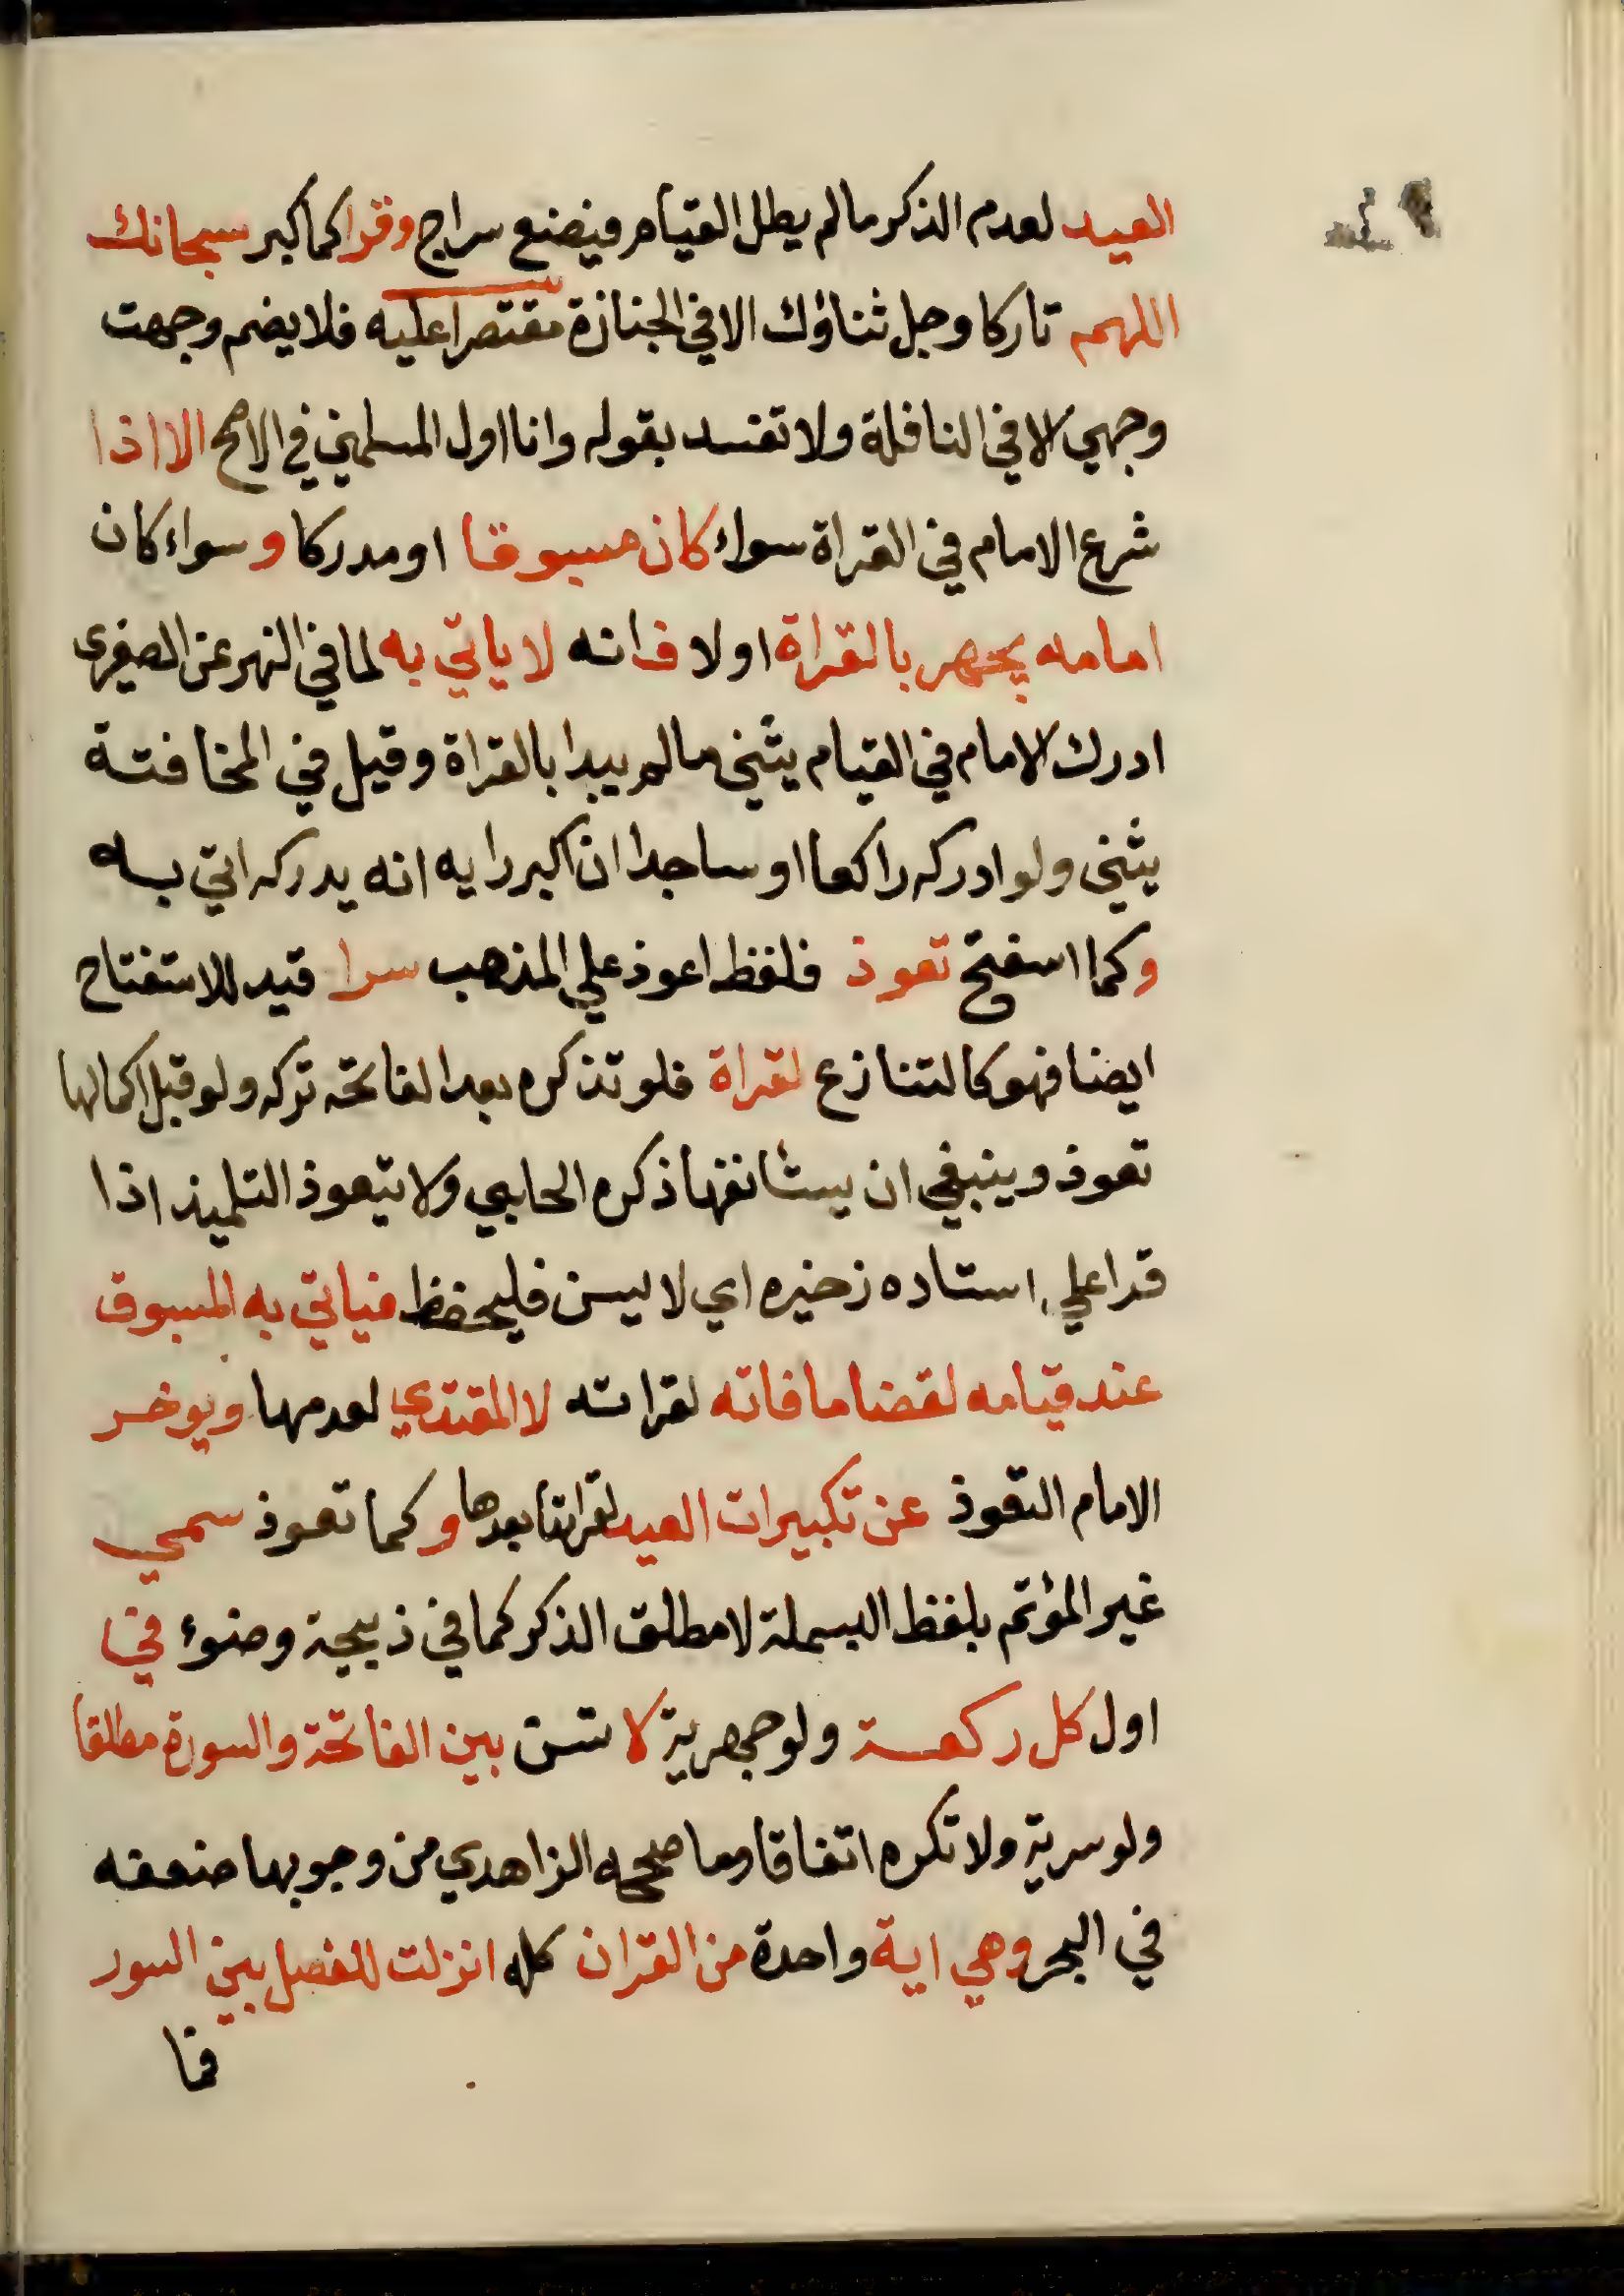 العيد لعدم الذكر مالم يطل القيام فيضع سراج وقرا كما كبر سبحانك
اللهم تاركا وجل ثناؤك الا في الجنازة مقتصرا عليه فلا يضم وجهت
وجهي الا في النافلة ولا تفسد بقوله وانا اول المسلمين في الاصح الا اذا
شرع الامام في القراة سواء كان مسبوقا او مدركا وسواء كان
امامه يجهر بالقراة او لا فانه لا ياتي به لما في النهر عن الصغرى
ادرك الامام في القيام يثني مالم يبدا بالقراة وقيل في المخافتة
يثني ولو ادركه راكعا او ساجدا ان اكبر رايه انه يدركه اتي به
وكما اسفتح تعوذ فلفظ اعوذ علي المذهب سرا قيد للاستفتاح
ايضا فهو كالتنازع لقراة فلو تذكره بعد الفاتحة تركه ولو قبل اكمالها
تعوذ وينبغي ان يستانفها ذكره الحلبي ولا يتعوذ التلميذ اذا
قرا علي استاده زخيره اي لا يسن فليحفظ فياتي به المسبوق
عند قيامه لقضا ما فاته لقراته لا المقتدي لعدمها ويوخر
الامام التعوذ عن تكبيرات العيد لقراتها بعدها وكما تعوذ سمي
غير المؤتم بلفظ البسملة لا مطلق الذكر كما في ذبيحة وضوء في
اول كل ركعة ولو جهرية لا تسن بين الفاتحة والسورة مطلقا
ولو سرية ولا تكره اتفاقا وما صححه الزاهدي من وجوبها ضعفه
في البحر وهي اية واحدة من القران كله انزلت للفصل بين السور
فما